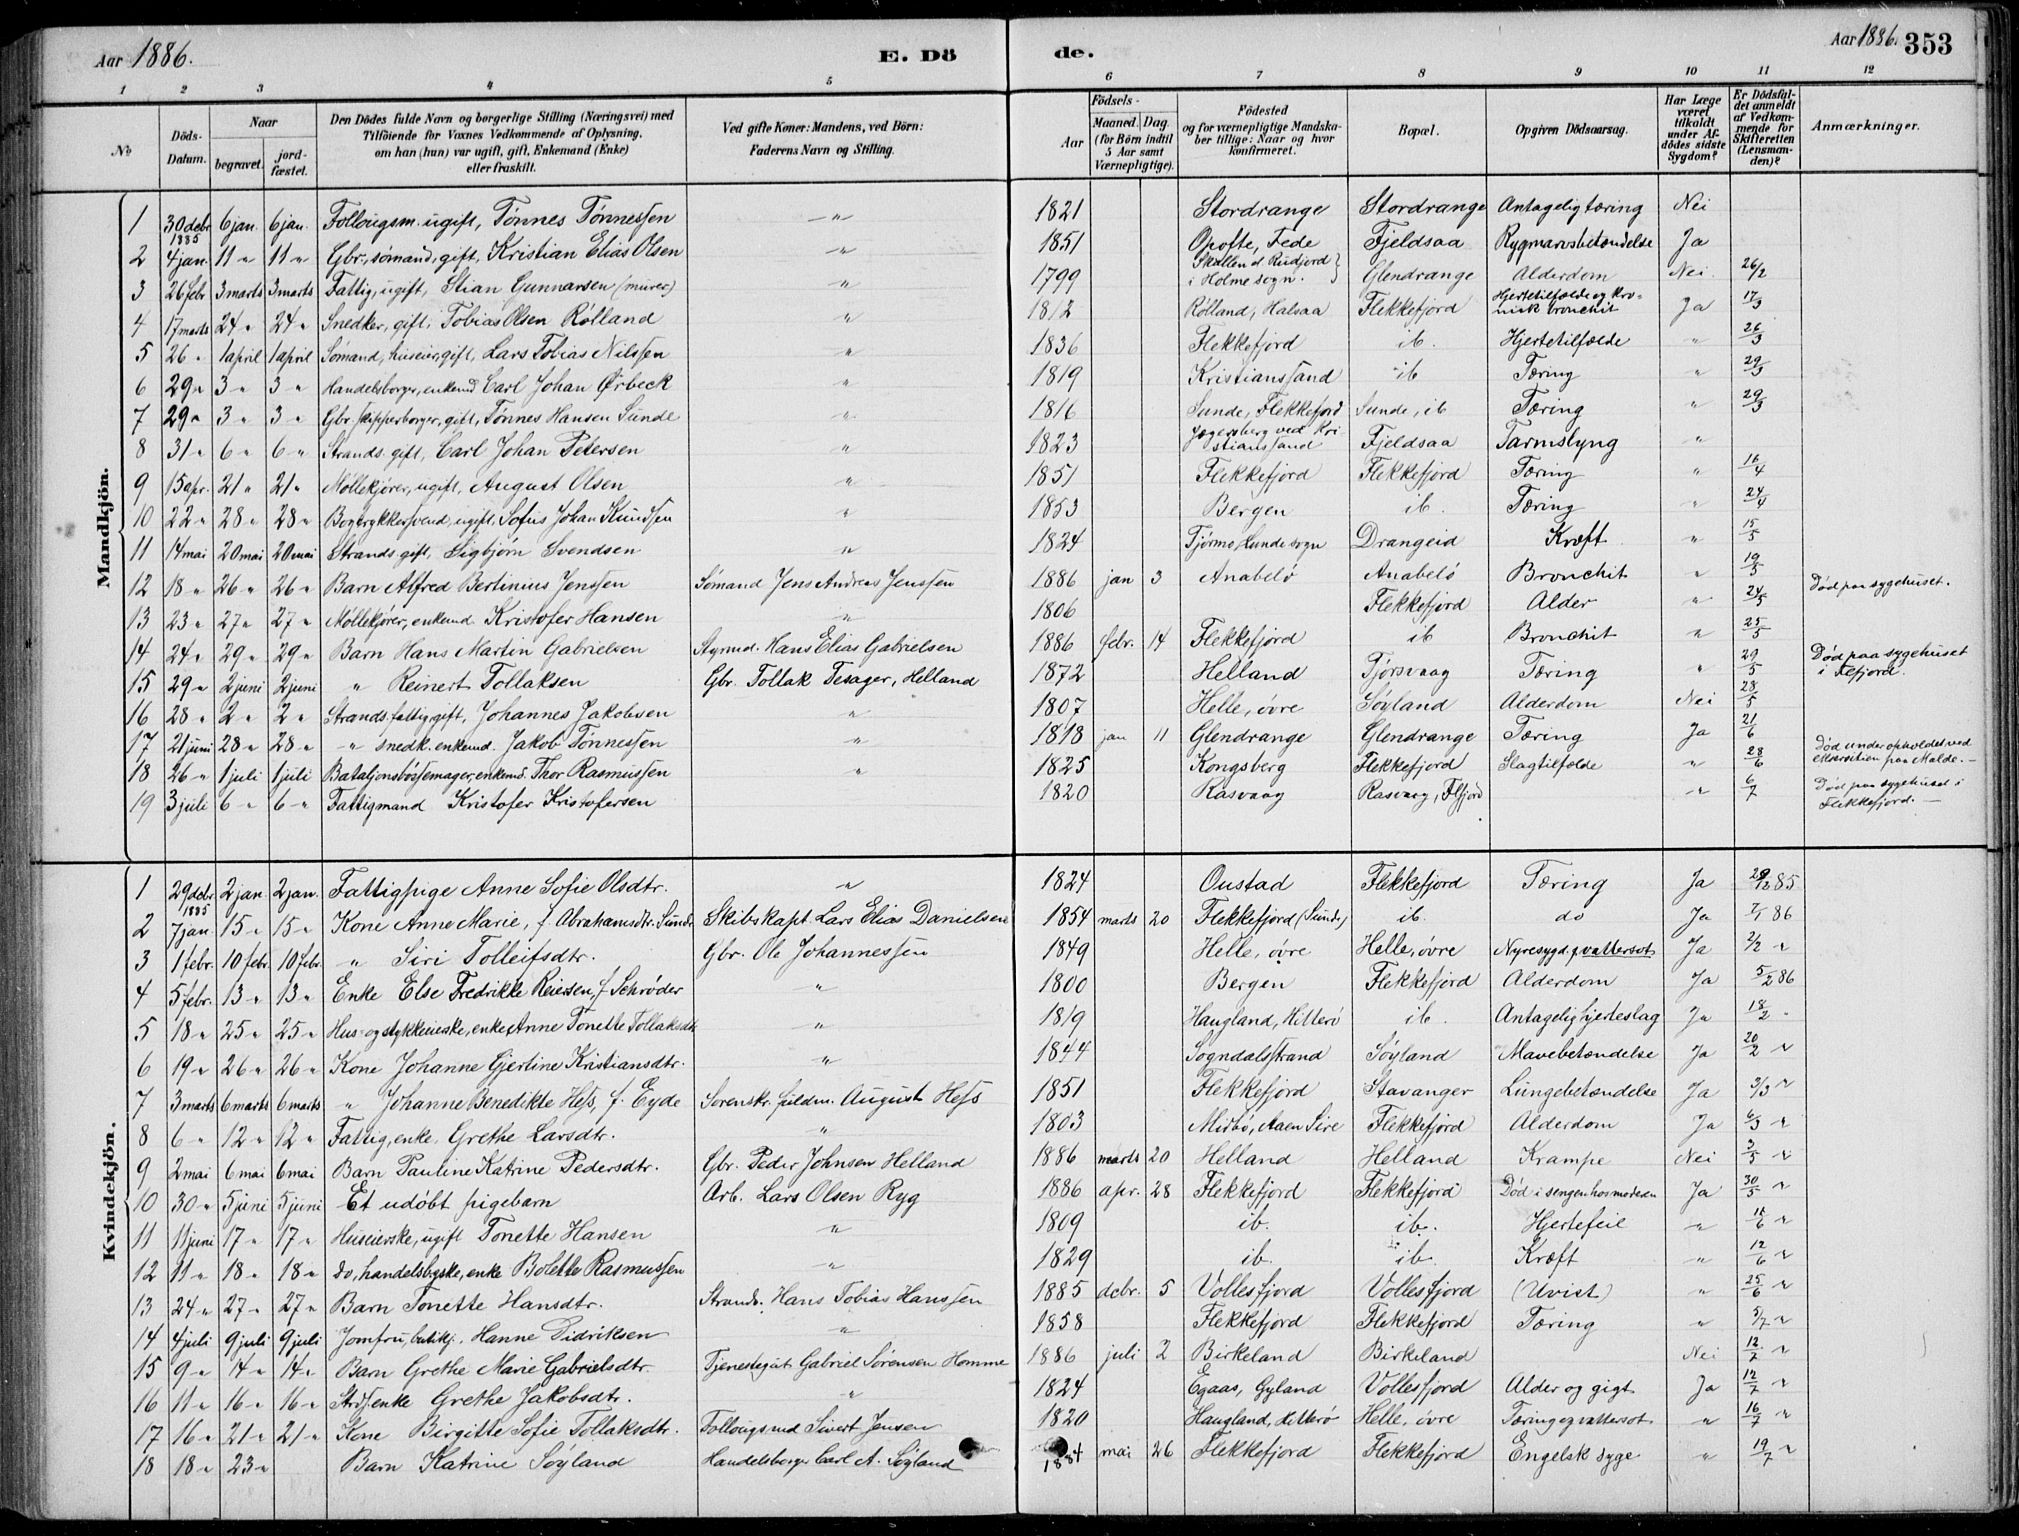 Aar 1886. E. Dö de. Aar 1886. 353
1 2 3 4 5 6 7 8 9 10 11 12
No Döds-Datum. Naar begravet. jord-fæstet. Den Dödes fulde Navn og borgerlige Stilling (Næringsvei) med Tilföiende for Voxnes Vedkommende af Oplysning, om han (hun) var ugift, gift, Enkemand (Enke) eller fraskilt. Ved gifte Koner: Mandens, ved Börn: Faderens Navn og Stilling. Födsels- Aar Maaned. Dag. (for Börn indtil 5 Aar samt Værnepligtige). Födested og for værnepligtige Mandska-ber tillige: Naar og hvor konfirmeret. Bopæl. Opgiven Dödsaarsag. Har Læge været tilkaldt under Af-dödes sidste Sygdom? Er Dödsfal-det anmeldt af Vedkom-mende for Skifteretten (Lensman-den)? Anmærkninger.
Mandkjön.
1 30 debr 1885 6 jan. 6 jan. Tollougsm. ugift, Tønnes Tønnessen " 1821 Stordrange Stordrange Antagelig tæring Nei
2 4 jan. 11 " 11 " Gbr., sømand, gift, Kristian Elias Olsen " 1851 Opofte, Fede Fjeldsaa Rygmarvsbetændelse Ja
3 26 febr. 3 marts 3 marts Fattig, ugift, Stian Gunnarsen (murer) " 1799 Skallen d. Rudjord i Holme sogn. Glendrange Alderdom Nei 26/2
4 17 marts 24 " 24 " Snedker, gift, Tobias Olsen Rølland " 1812 Rølland, Halsaa Flekkefjord Hjertetilfælde og kro-nisk bronchit Ja 17/3
5 26 " 1 april 1 april Sømand, huseier, gift, Lars Tobias Nilssen " 1836 Flekkefjord ib. Hjertetilfælde " 26/3
6 29 " 3 " 3 " Handelsborger, enkemd Carl Johan Ørbeck " 1819 Kristianssand ib Tæring " 29/3
7 29 " 3 " 3 " Gbr. skipperborger, gift, Tønnes Hansen Sunde " 1816 Sunde, Flekkefjord Sunde, ib Tæring " 29/3
8 31 " 6 " 6 " Strands. gift, Carl Johan Petersen " 1823 Jegersberg ved Kri-stianssand Fjeldsaa Tarmslyng "
9 15 apr. 21 " 21 " Møllekjører, ugift, August Olsen " 1851 Flekkefjord Flekkefjord Tæring " 16/4
10 22 " 28 " 28 " Bogtrykkersvend, ugift, Sofus Johan Knudsen " 1853 Bergen ib. Tæring " 24/4
11 14 mai 20 mai 20 mai Strands. gift, Sigbjørn Svendsen " 1824 Tjørmo, Lunde sogn Drangeid Kræft " 15/5
12 18 " 26 " 26 " Barn Alfred Bertinius Jenssen Sømand Jens Andreas Jenssen 1886 jan 3 Anabelø Anabelø Bronchit " 19/5
13 23 " 27 " 27 " Møllekjører, enkemd. Kristofer Hansen " 1806 Flekkefjord Alder " 24/5 Død paa sygehuset.
14 24 " 29 " 29 " Barn Hans Martin Gabrielsen Styrmd. Hans Elias Gabrielsen 1886 febr. 14 Flekkefjord ib Bronchit " 25/5
15 29 " 2 juni 2 juni " Reinert Tollaksen Gbr. Tollak Tesager, Helland 1872 Helland Tjorsvaag Tæring " 29/5 Død paa sygehuset i Flefjord.
16 28 " 2 " 2 " Strands. fattig, gift, Johannes Jakobsen " 1807 Helle, øvre Søyland Alderdom Nei 28/5
17 21 juni 28 " 28 " " snedk. enkemd. Jakob Tønnessen " 1818 jan 11 Glendrange Glendrange Tæring Ja 21/6
18 26 " 1 juli 1 juli Bataljonsbøssemager, enkemd. Thor Rasmussen " 1825 Kongsberg Flekkefjord Slagtilfælde " 28/6 Død under opholdet ved eksersitien paa Malde.
19 3 juli 6 " 6 " Fattigmand Kristofer Kristofersen 1820 Rasvaag Rasvaag, Flfjord " 6/7 Død paa sygehuset i Flekkefjord.
Kvindekjön.
1 29 debr 1885 2 jan. 2 jan. Fattigpige Anne Sofie Olsdtr. " 1824 Oustad Flekkefjord Tæring Ja 29/12 85
2 7 jan. 15 " 15 " Kone Anne Marie, f. Abrahamsdtr. Sunde Skibskapt. Lars Elias Danielsen 1854 marts 20 Flekkefjord (Sunde) ib. do Ja 7/1 86
3 1 febr. 10 febr. 10 febr. " Siri Tolleifsdtr. Gbr. Ole Johannessen 1849 Helle, øvre Helle, øvre Nyresygd. & vattersot Ja 2/2 "
4 5 febr. 13 " 13 " Enke Else Fredrikke Reiersen, f. Schrøder " 1800 Bergen Flekkefjord Alderdom Ja 5/2 86
5 18 " 25 " 25 " Hus- og stykkeieske, enke Anne Tonette Tollaksdtr " 1819 Haugland, Hitterø ib. Antagelig hjerteslag Ja 18/2 "
6 19 " 26 " 26 " Kone Johanne Gjertine Kristiansdtr. " 1844 Sogndalsstrand Søyland Mavebetændelse Ja 20/2 "
7 3 marts 6 marts 6 marts " Johanne Benedikte Hess, f. Eyde Sorenskr. fuldm. August Hess 1851 Flekkefjord Stavanger Lungebetændelse Ja 3/3 "
8 6 " 12 " 12 " Fattig, enke, Grethe Larsdtr. " 1803 Mirbø, Aaen Sire Flekkefjord Alderdom Ja 6/3 "
9 2 mai 6 mai 6 mai Barn Pauline Katrine Pedersdtr. Gbr. Peder Johnsen Helland 1886 marts 20 Helland Helland Krampe Nei 3/5 "
10 30 " 5 juni 5 juni Et udøbt pigebarn Arb. Lars Olsen Ryg 1886 apr. 28 Flekkefjord Flekkefjord Død i sengen hos moderen Ja 30/5 "
11 11 juni 17 " 17 " Huseierske, ugift Tonette Hansen " 1809 ib. ib. Hjertefeil " 11/6 "
12 11 " 18 " 18 " do, handelsbgske, enke Bolette Rasmussen " 1829 ib. ib. Kræft " 12/6 "
13 24 " 27 " 27 " Barn Tonette Hansdtr. Strands. Hans Tobias Hanssen 1885 debr. 5 Vollesfjord Vollesfjord (Uvist) " 25/6 "
14 4 juli 9 juli 9 juli Jomfru, butikj. Hanne Didriksen " 1858 Flekkefjord Flekkefjord Tæring " 5/7 "
15 9 " 14 " 14 " Barn Grethe Marie Gabrielsdtr. Tjenestegut Gabriel Sørensen Homme 1886 juli 2 Birkeland Birkeland Nei 12/7 "
16 11 " 16 " 16 " Strdsenke Grethe Jakobsdtr. " 1824 Egaas, Gyland Vollesfjord Alder og gigt Ja 12/7 "
17 16 " 21 " 21 " Kone Birgitte Sofie Tollaksdtr. Tollougsmd Sivert Jensen 1820 Haugland, Hitterø Helle, øvre Tæring og vattersot " 16/7 "
18 18 " 23 " Barn Katrine Søyland Handelsborger Carl A. Søyland 1884 mai 26 Flekkefjord Flekkefjord Engelsk syge " 19/7 "